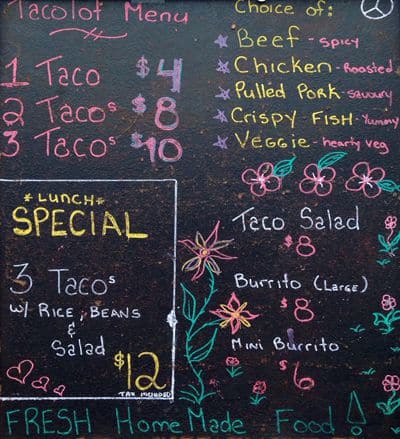 Tacolot Menu
1 Taco $4
2 Tacos $8
3 Tacos $10
Choice of:
Beef - spicy
Chicken - Roasted
Pulled Pork - savoury
Crispy Fish - Yummy
Veggie - hearty veg
* LUNCH *
SPECIAL
3 Tacos
w/ RICE, BEANS
&
Salad
$12
TAX INCLUDED
Taco Salad
$8
Burrito (Large)
$8
Mini Burrito
$6
FRESH HomeMade Food!